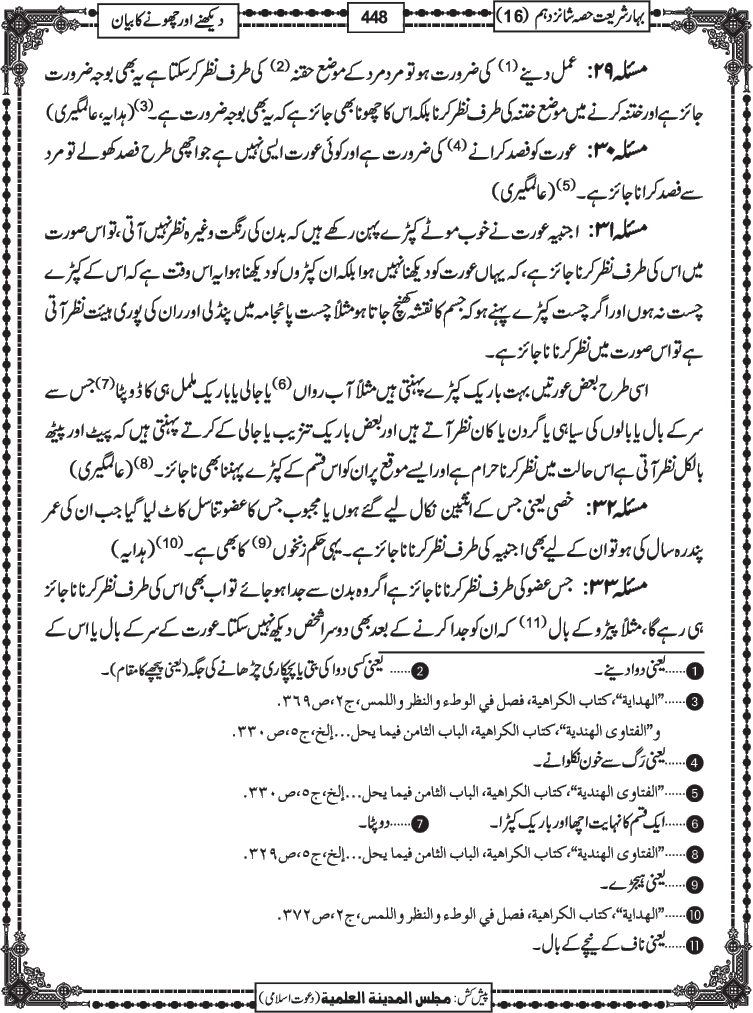 بہارِ شریعت حصہ شانزدہم (16)
448
دیکھنے اور چھونے کا بیان
مسئلہ ۲۹: عمل دینے (1) کی ضرورت ہو تو مرد مرد کے موضع حقنہ (2) کی طرف نظر کر سکتا ہے یہ بھی بوجہ ضرورت
جائز ہے اور ختنہ کرنے میں موضع ختنہ کی طرف نظر کرنا بلکہ اس کا چھونا بھی جائز ہے کہ یہ بھی بوجہ ضرورت ہے۔ (3) (ہدایہ، عالمگیری)
مسئلہ ۳۰: عورت کو فصد کرانے (4) کی ضرورت ہے اور کوئی عورت ایسی نہیں ہے جو اچھی طرح فصد کھولے تو مرد
سے فصد کرانا جائز ہے۔ (5) (عالمگیری)
مسئلہ ۳۱: اجنبیہ عورت نے خوب موٹے کپڑے پہن رکھے ہیں کہ بدن کی رنگت وغیرہ نظر نہیں آتی، تو اس صورت
میں اس کی طرف نظر کرنا جائز ہے، کہ یہاں عورت کو دیکھنا نہیں ہوا بلکہ ان کپڑوں کو دیکھنا ہوا یہ اس وقت ہے کہ اس کے کپڑے
چست نہ ہوں اور اگر چست کپڑے پہنے ہو کہ جسم کا نقشہ کھنچ جاتا ہو مثلاً چست پائجامہ میں پنڈلی اور ران کی پوری ہیئت نظر آتی
ہے تو اس صورت میں نظر کرنا ناجائز ہے۔
اسی طرح بعض عورتیں بہت باریک کپڑے پہنتی ہیں مثلاً آب رواں (6) یا جالی یا باریک ململ ہی کا ڈوپٹا (7) جس سے
سر کے بال یا بالوں کی سیاہی یا گردن یا کان نظر آتے ہیں اور بعض باریک تنزیب یا جالی کے کرتے پہنتی ہیں کہ پیٹ اور پیٹھ
بالکل نظر آتی ہے اس حالت میں نظر کرنا حرام ہے اور ایسے موقع پر ان کو اس قسم کے کپڑے پہننا بھی ناجائز۔ (8) (عالمگیری)
مسئلہ ۳۲: خصی یعنی جس کے انثیین نکال لیے گئے ہوں یا مجبوب جس کا عضو تناسل کاٹ لیا گیا جب ان کی عمر
پندرہ سال کی ہو تو ان کے لیے بھی اجنبیہ کی طرف نظر کرنا ناجائز ہے۔ یہی حکم زنخوں (9) کا بھی ہے۔ (10) (ہدایہ)
مسئلہ ۳۳: جس عضو کی طرف نظر کرنا ناجائز ہے اگر وہ بدن سے جدا ہو جائے تو اب بھی اس کی طرف نظر کرنا ناجائز
ہی رہے گا، مثلاً پیڑو کے بال (11) کہ ان کو جدا کرنے کے بعد بھی دوسرا شخص دیکھ نہیں سکتا۔ عورت کے سر کے بال یا اس کے
1 ......یعنی دوا دینے۔ 2 ......یعنی کسی دوا کی بتی یا پچکاری چڑھانے کی جگہ (یعنی پیچھے کا مقام)۔
3 ......"الھدایة"، کتاب الکراھیة، فصل في الوطء والنظر واللمس، ج۲، ص۳٦۹.
و"الفتاوی الھندیة"، کتاب الکراھیة، الباب الثامن فیما یحل...إلخ، ج۵، ص۳۳۰.
4 ......یعنی رَگ سے خون نکلوانے۔
5 ......"الفتاوی الھندیة"، کتاب الکراھیة، الباب الثامن فیما یحل...إلخ، ج۵، ص۳۳۰.
6 ......ایک قسم کا نہایت اچھا اور باریک کپڑا۔ 7 ......دوپٹا۔
8 ......"الفتاوی الھندیة"، کتاب الکراھیة، الباب الثامن فیما یحل...إلخ، ج۵، ص۳۲۹.
9 ......یعنی ہیجڑے۔
10 ......"الھدایة"، کتاب الکراھیة، فصل في الوطء والنظر واللمس، ج۲، ص۳۷۲.
11 ......یعنی ناف کے نیچے کے بال۔
پیش کش: مجلس المدینة العلمیة (دعوتِ اسلامی)